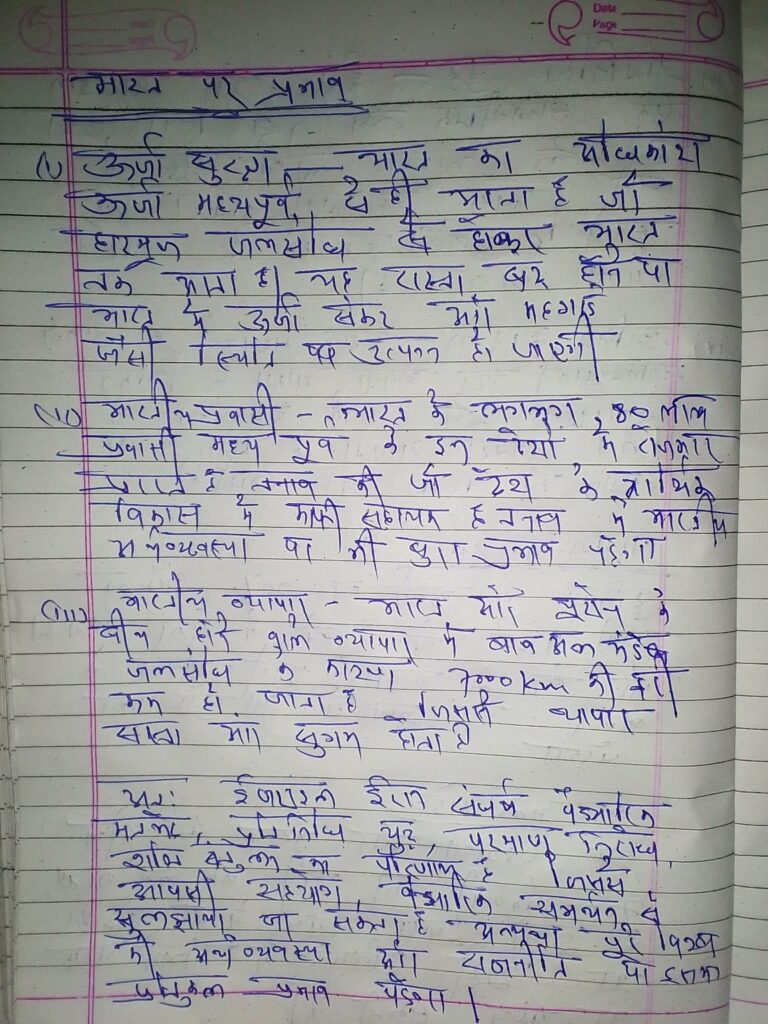 Date
Page
भारत पर प्रभाव
(i) ऊर्जा सुरक्षा — भारत का अधिकांश
ऊर्जा मध्यपूर्व से ही आता है जो
हारमूज जलसंधि से होकर भारत
तक आता है। यह रास्ता बंद होने पर
भारत में ऊर्जा संकट और महंगाई
जैसी स्थिति उत्पन्न हो जाएगी
(ii) भारतीय प्रवासी – भारत के लगभग 80 लाख
प्रवासी मध्य पूर्व के इन देशों में रोजगार
प्राप्त है तनाव की जो देश के आर्थिक
विकास में काफी सहायक है तनाव में भारतीय
अर्थव्यवस्था पर भी बुरा प्रभाव पड़ेगा
(iii) भारतीय व्यापार – भारत और यूरोप के
बीच होने वाले व्यापार में बाब अल मंडेब
जलसंधि के कारण 7000 km की दूरी
कम हो जाता है जिससे व्यापार
सस्ता और सुगम होता है
अतः ईजराइल ईरान संघर्ष वैश्विक
मतभेद, प्रतिनिधि युद्ध, परमाणु
शक्ति संतुलन का परिणाम है जिसे
आपसी सहयोग, समर्थन से
सुलझाया जा सकता है अन्यथा पूरे विश्व
की अर्थव्यवस्था और राजनीति पर इसका
प्रतिकूल प्रभाव पड़ेगा।